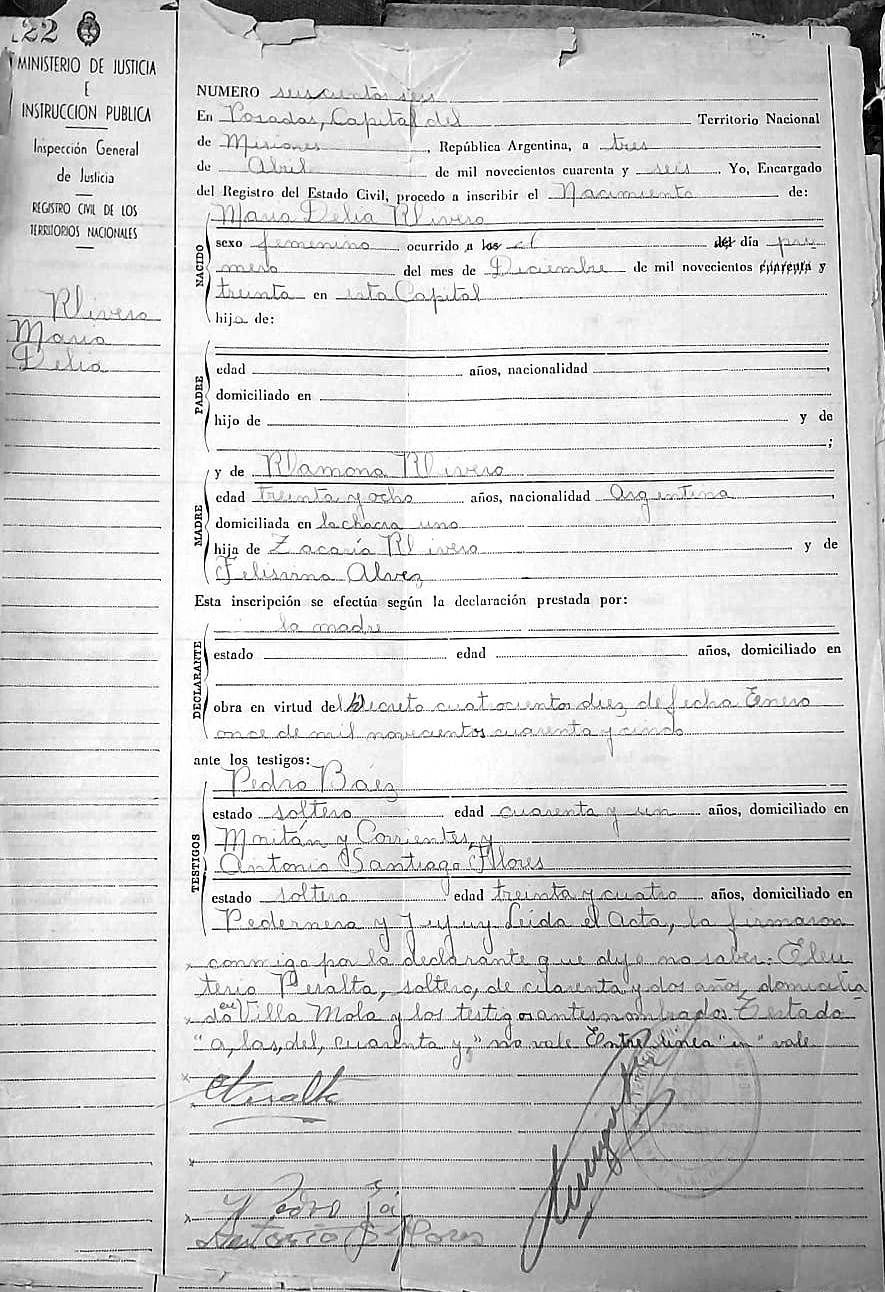 22
MINISTERIO DE JUSTICIA
E
INSTRUCCION PUBLICA
Inspección General
de Justicia
REGISTRO CIVIL DE LOS
TERRITORIOS NACIONALES
Rivero
Maria
Delia
NUMERO seiscientos seis
En Posadas, Capital del Territorio Nacional
de Misiones, República Argentina, a tres
de Abril de mil novecientos cuarenta y seis. Yo, Encargado
del Registro del Estado Civil, procedo a inscribir el Nacimiento de:
Maria Delia Rivero
NACIDO
sexo femenino ocurrido a las el del día pri
mero del mes de Diciembre de mil novecientos cuarenta y
treinta en esta Capital
hija de:
PADRE
edad años, nacionalidad ,
domiciliado en
hijo de y de
;
MADRE
y de Ramona Rivero
edad treinta y ocho años, nacionalidad Argentina,
domiciliada en la chacra uno
hija de Zacaría Rivero y de
Felisiana Alvez
Esta inscripción se efectúa según la declaración prestada por:
DECLARANTE
la madre
estado edad años, domiciliado en
obra en virtud del Decreto cuatrocientos diez de fecha Enero
once de mil novecientos cuarenta y cinco
ante los testigos:
TESTIGOS
Pedro Báez
estado soltero edad cuarenta y un años, domiciliado en
Moritán y Corrientes, y
Antonio Santiago Flores
estado soltero edad treinta y cuatro años, domiciliado en
Pedernera y Jujuy Leida el Acta, la firmaron
conmigo por la declarante que dijo no saber: Eleu
terio Peralta, soltero, de cuarenta y dos años, domicilia
do en Villa Mola y los testigos antes nombrados. Testado
"a, las, del, cuarenta y," no vale Entre linea "en" vale
EPeralta
Pedro
Antonio S Flores